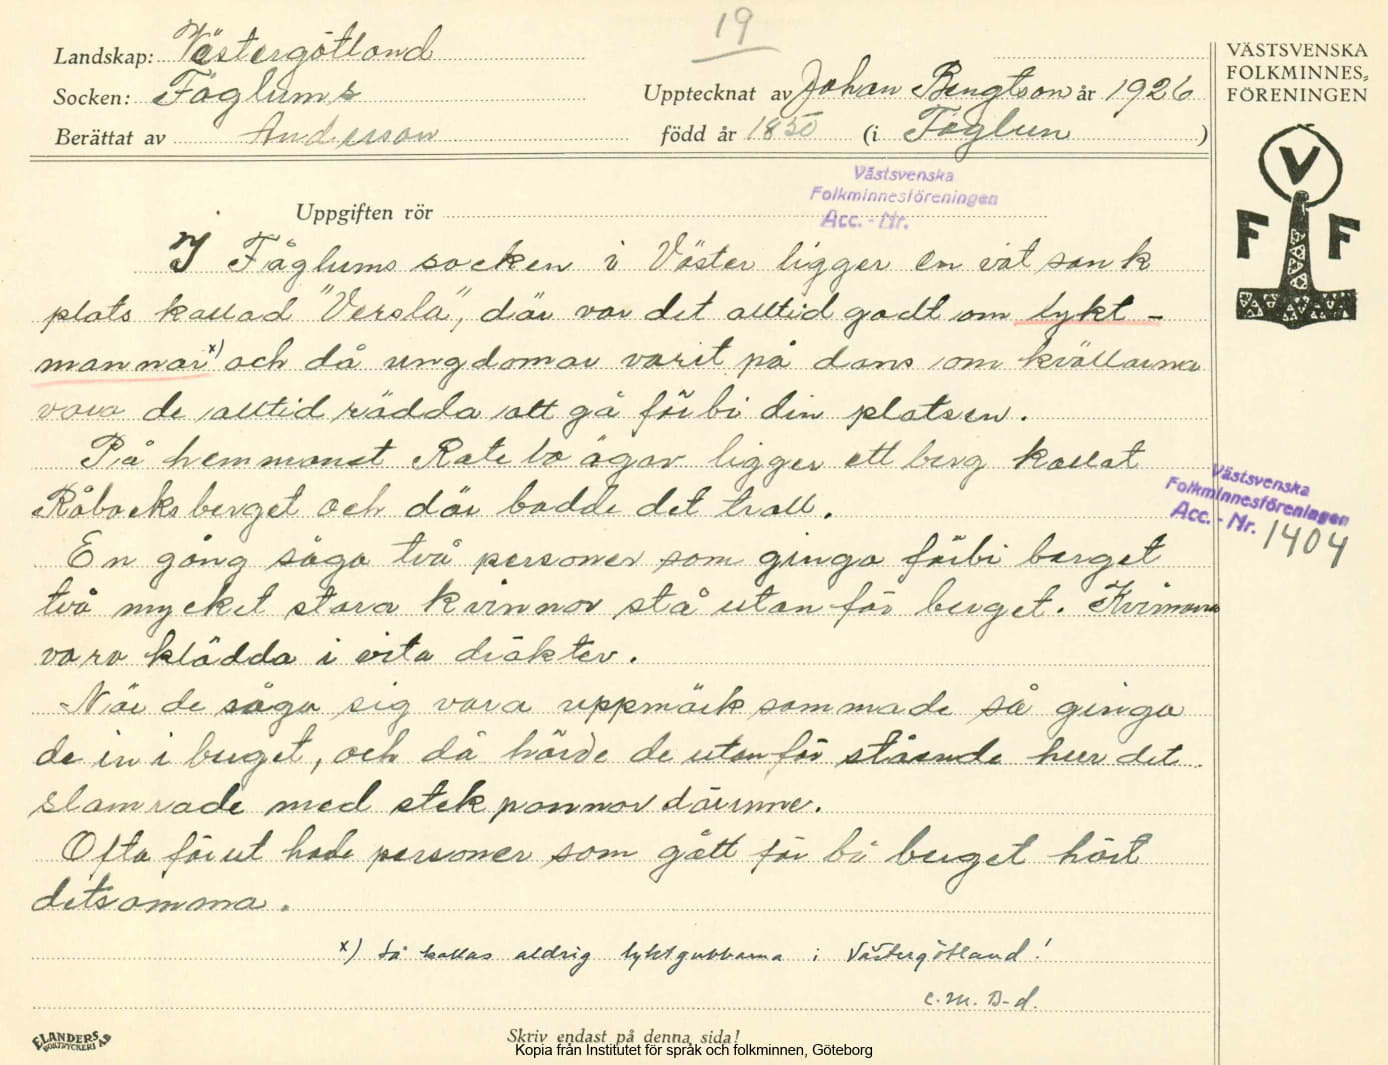 19
Landskap: Västergötland
Socken: Fåglums
Upptecknat av Johan Bengtson år 1926
Berättat av Anderson
född år 1850 (i Fåglum )
VÄSTSVENSKA
FOLKMINNES-
FÖRENINGEN
V
F F
Västsvenska
Folkminnesföreningen
Acc. - Nr.
Uppgiften rör
I Fåglums socken i Väster ligger en vät sank
plats kallad "Versla", där var det alltid godt om lykt-
mannar x) och då ungdomar varit på dans om kvällarna
vara de alltid rädda att gå förbi din platsen.
På hemmanet Ratebo ägor ligger ett berg kallat
Råbocksberget och där bodde det troll.
En gång såga två personer som ginga förbi berget
två mycket stora kvinnor stå utanför berget. Kvinnorna
vara klädda i vita dräkter.
När de såga sig vara uppmärksammade så ginga
de in i berget, och då hörde de utanför stående hur det
slamrade med stekpannor därinne.
Ofta förut hade personer som gått förbi berget hört
detsamma.
x) Så kallas aldrig lyktgubbarna i Västergötland!
C. M. B-d.
Västsvenska
Folkminnesföreningen
Acc. - Nr. 1404
ELANDERS
BOKTRYCKERI AB
Skriv endast på denna sida!
Kopia från Institutet för språk och folkminnen, Göteborg